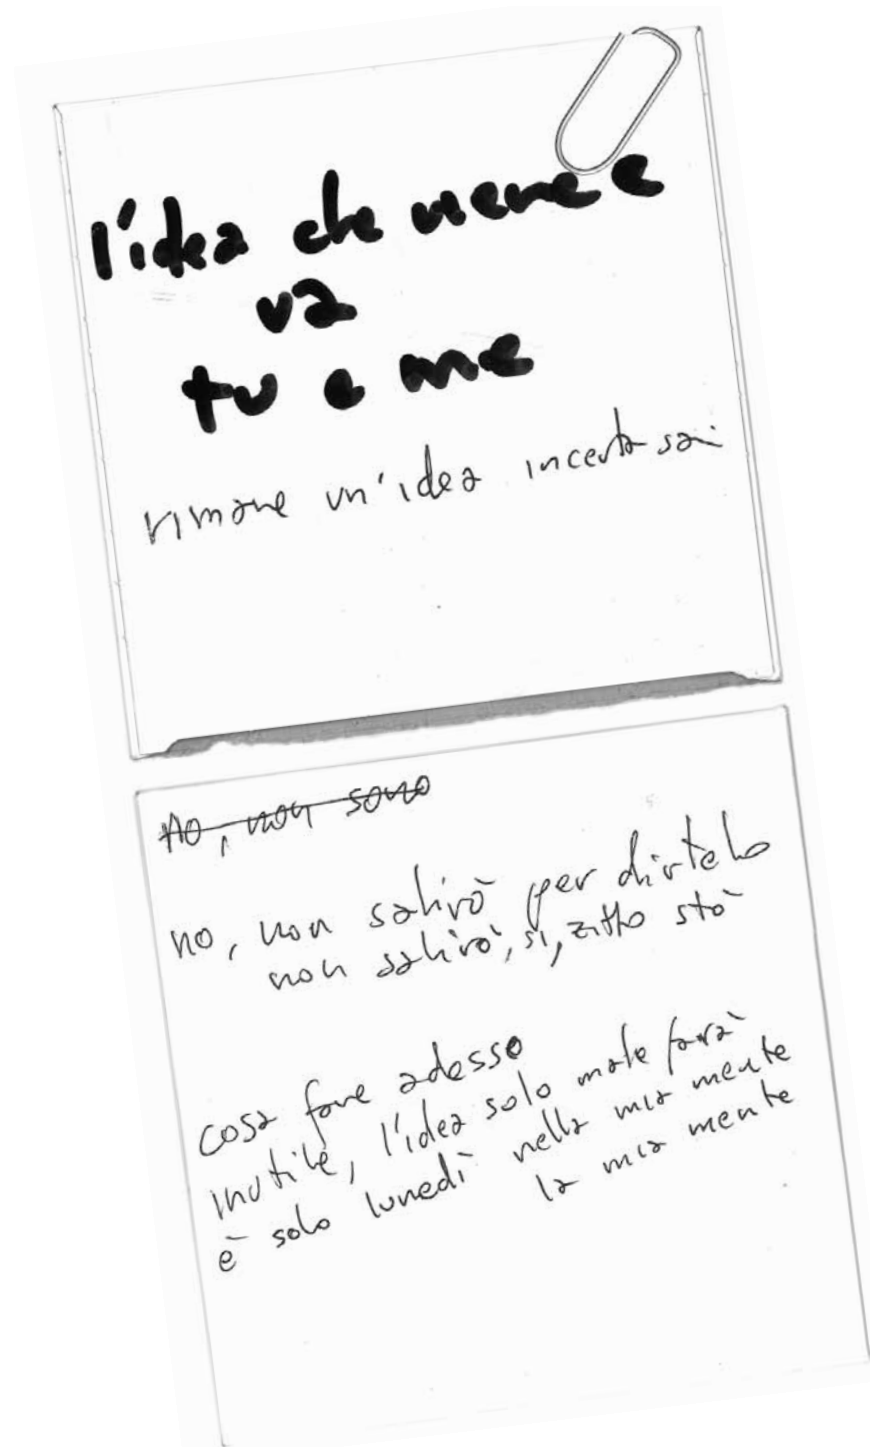 l'idea che viene e
va
tu e me
rimane un'idea incerta sai
no, non sono
no, non salirò per dirtelo
non salirò, sì, zitto stò
cosa fare adesso
inutile, l'idea solo male farà
è solo lunedì nella mia mente
la mia mente